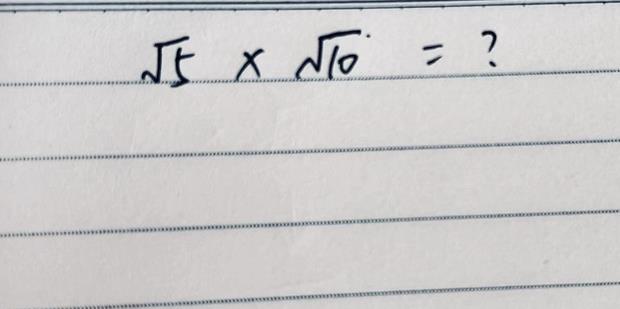 √5 × √10 = ?